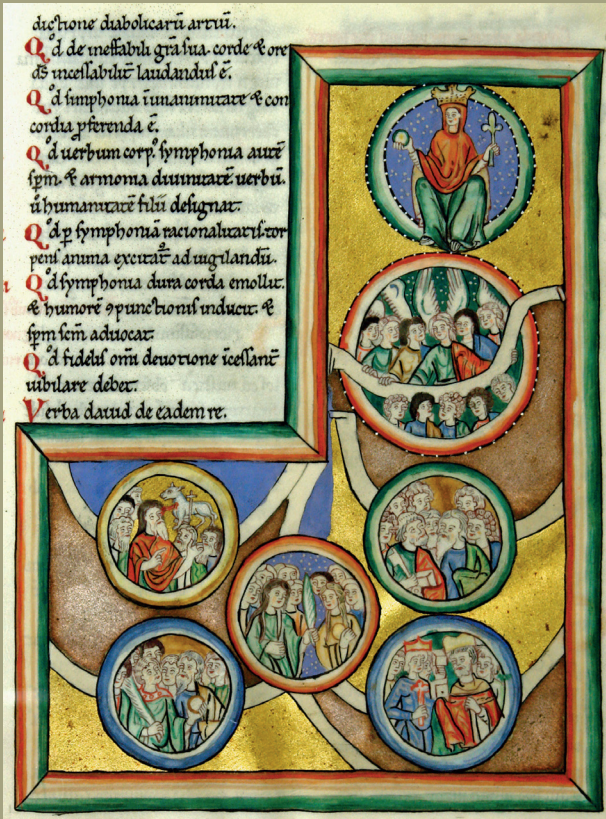 dictione diabolicarū artiū.
Qͦd de ineffabili grā sua. corde & ore
ds̄ incessabilit̄ laudandus ē.
Qͦd simphonia ī unanimitate & con
cordia p̄ferenda ē.
Qͦd uerbum corp̄. symphonia autē
spm̄. & armonia diuinitatē uerbū.
u̾ humanitatē filii designat.
Qͦd ꝑ symphoniā racionalitatis. tor
pens anima excitat᷑ ad uigilandū.
Qͦd symphonia dura corda emollit.
& humorē ꝯpunctionis inducit. &
spm̄ scm̄ aduocat.
Qͦd fidelis om̄i deuotione īcessant̄
iubilare debet.
Verba dauid de eadem re.